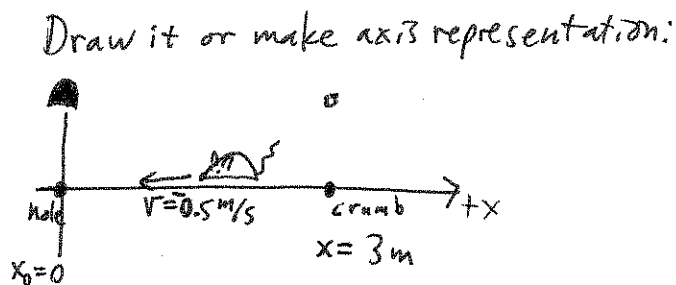 Draw it or make axis representation:
hole
v=-0.5 m/s
crumb
+x
x = 3m
x₀=0